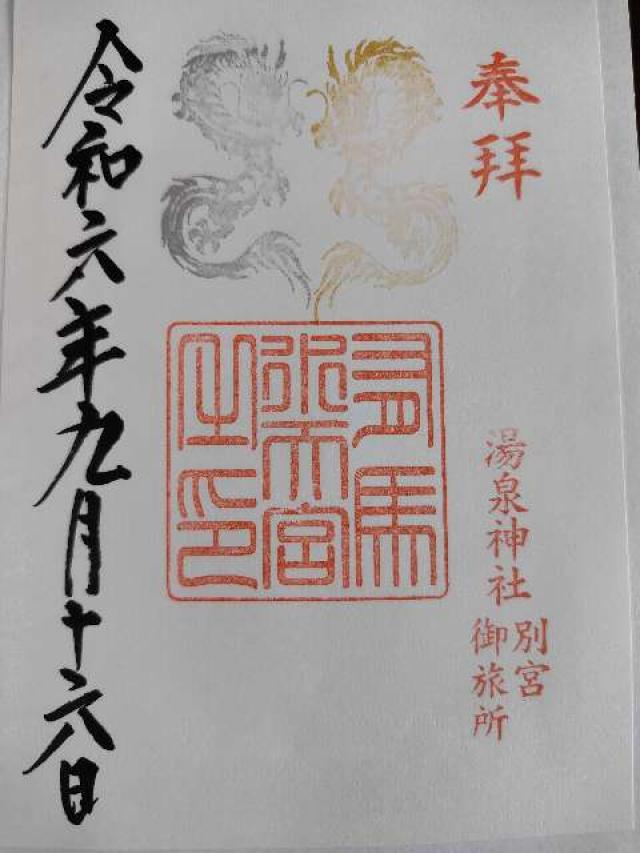 奉拝
湯泉神社
別宮
御旅所
有馬
水天宮
之印
令和六年九月十六日